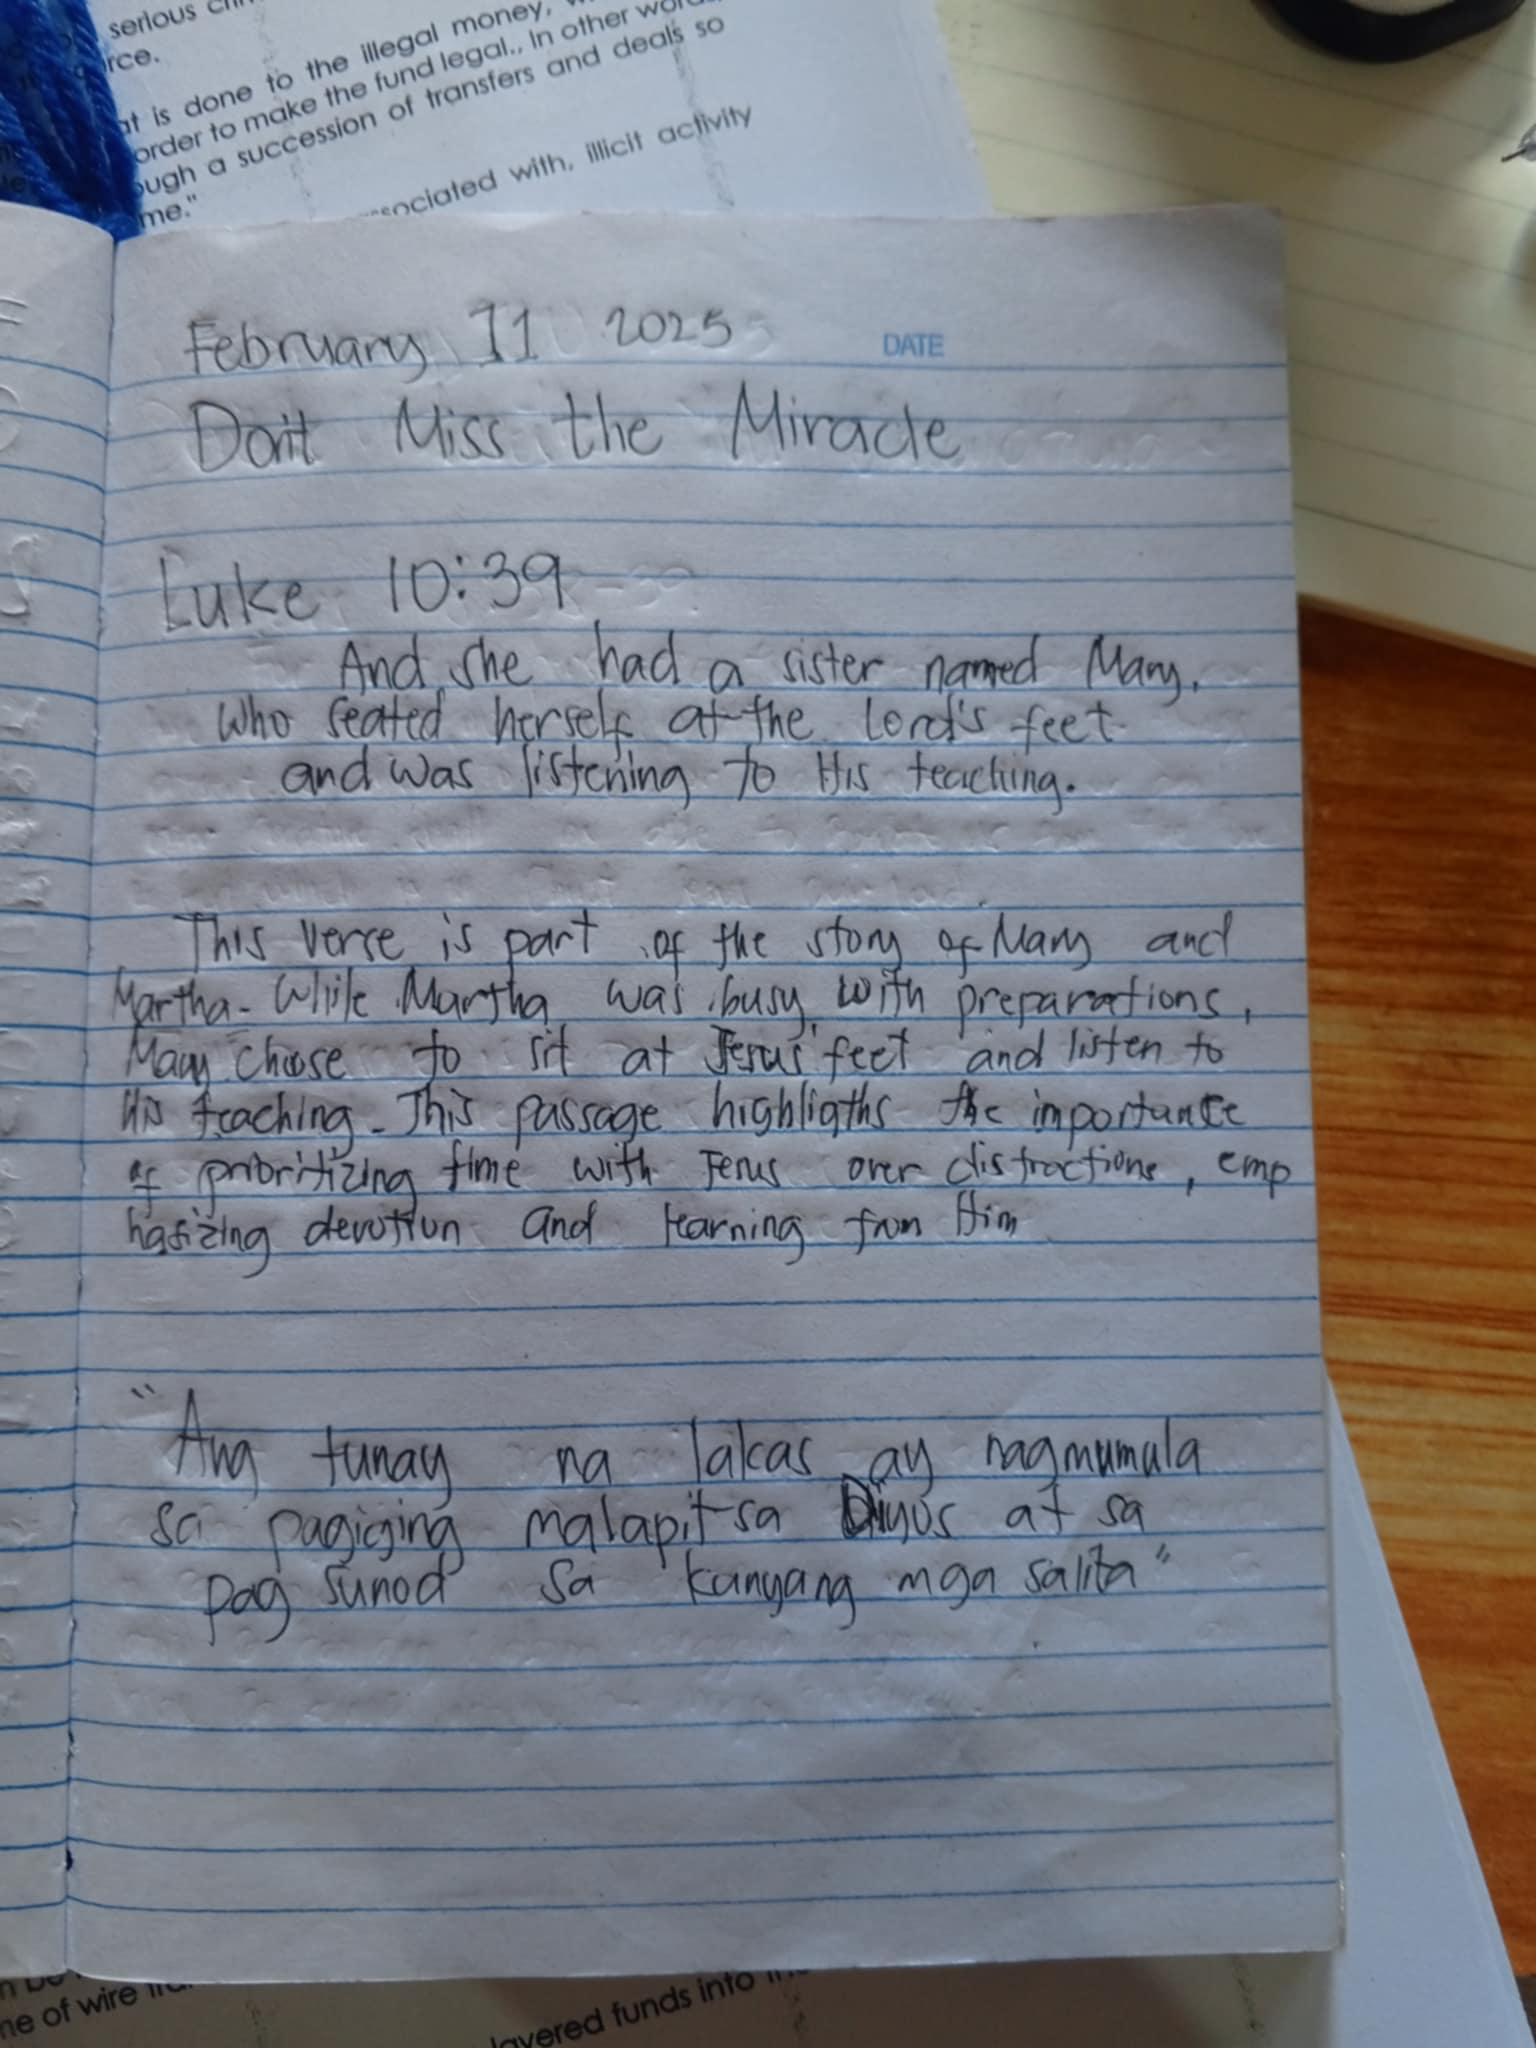 serious
rce.
at is done to the illegal money,
order to make the fund legal., In other
ough a succession of transfers and deals so
me."
associated with, illicit activity
February 11 2025
DATE
Don't Miss the Miracle
Luke 10:39
And she had a sister named Mary,
who seated herself at the Lord's feet
and was listening to His teaching.
This verse is part of the story of Mary and
Martha. While Martha was busy with preparations,
Mary choose to sit at Jesus' feet and listen to
His teaching. This passage highligths the importance
of prioritizing time with Jesus over distractions, emp
hasizing devotion and learning from Him
"Ang tunay na lakas ay nagmumula
sa pagiging malapit sa Diyos at sa
pag sunod sa kanyang mga salita"
ne of wire
layered funds into